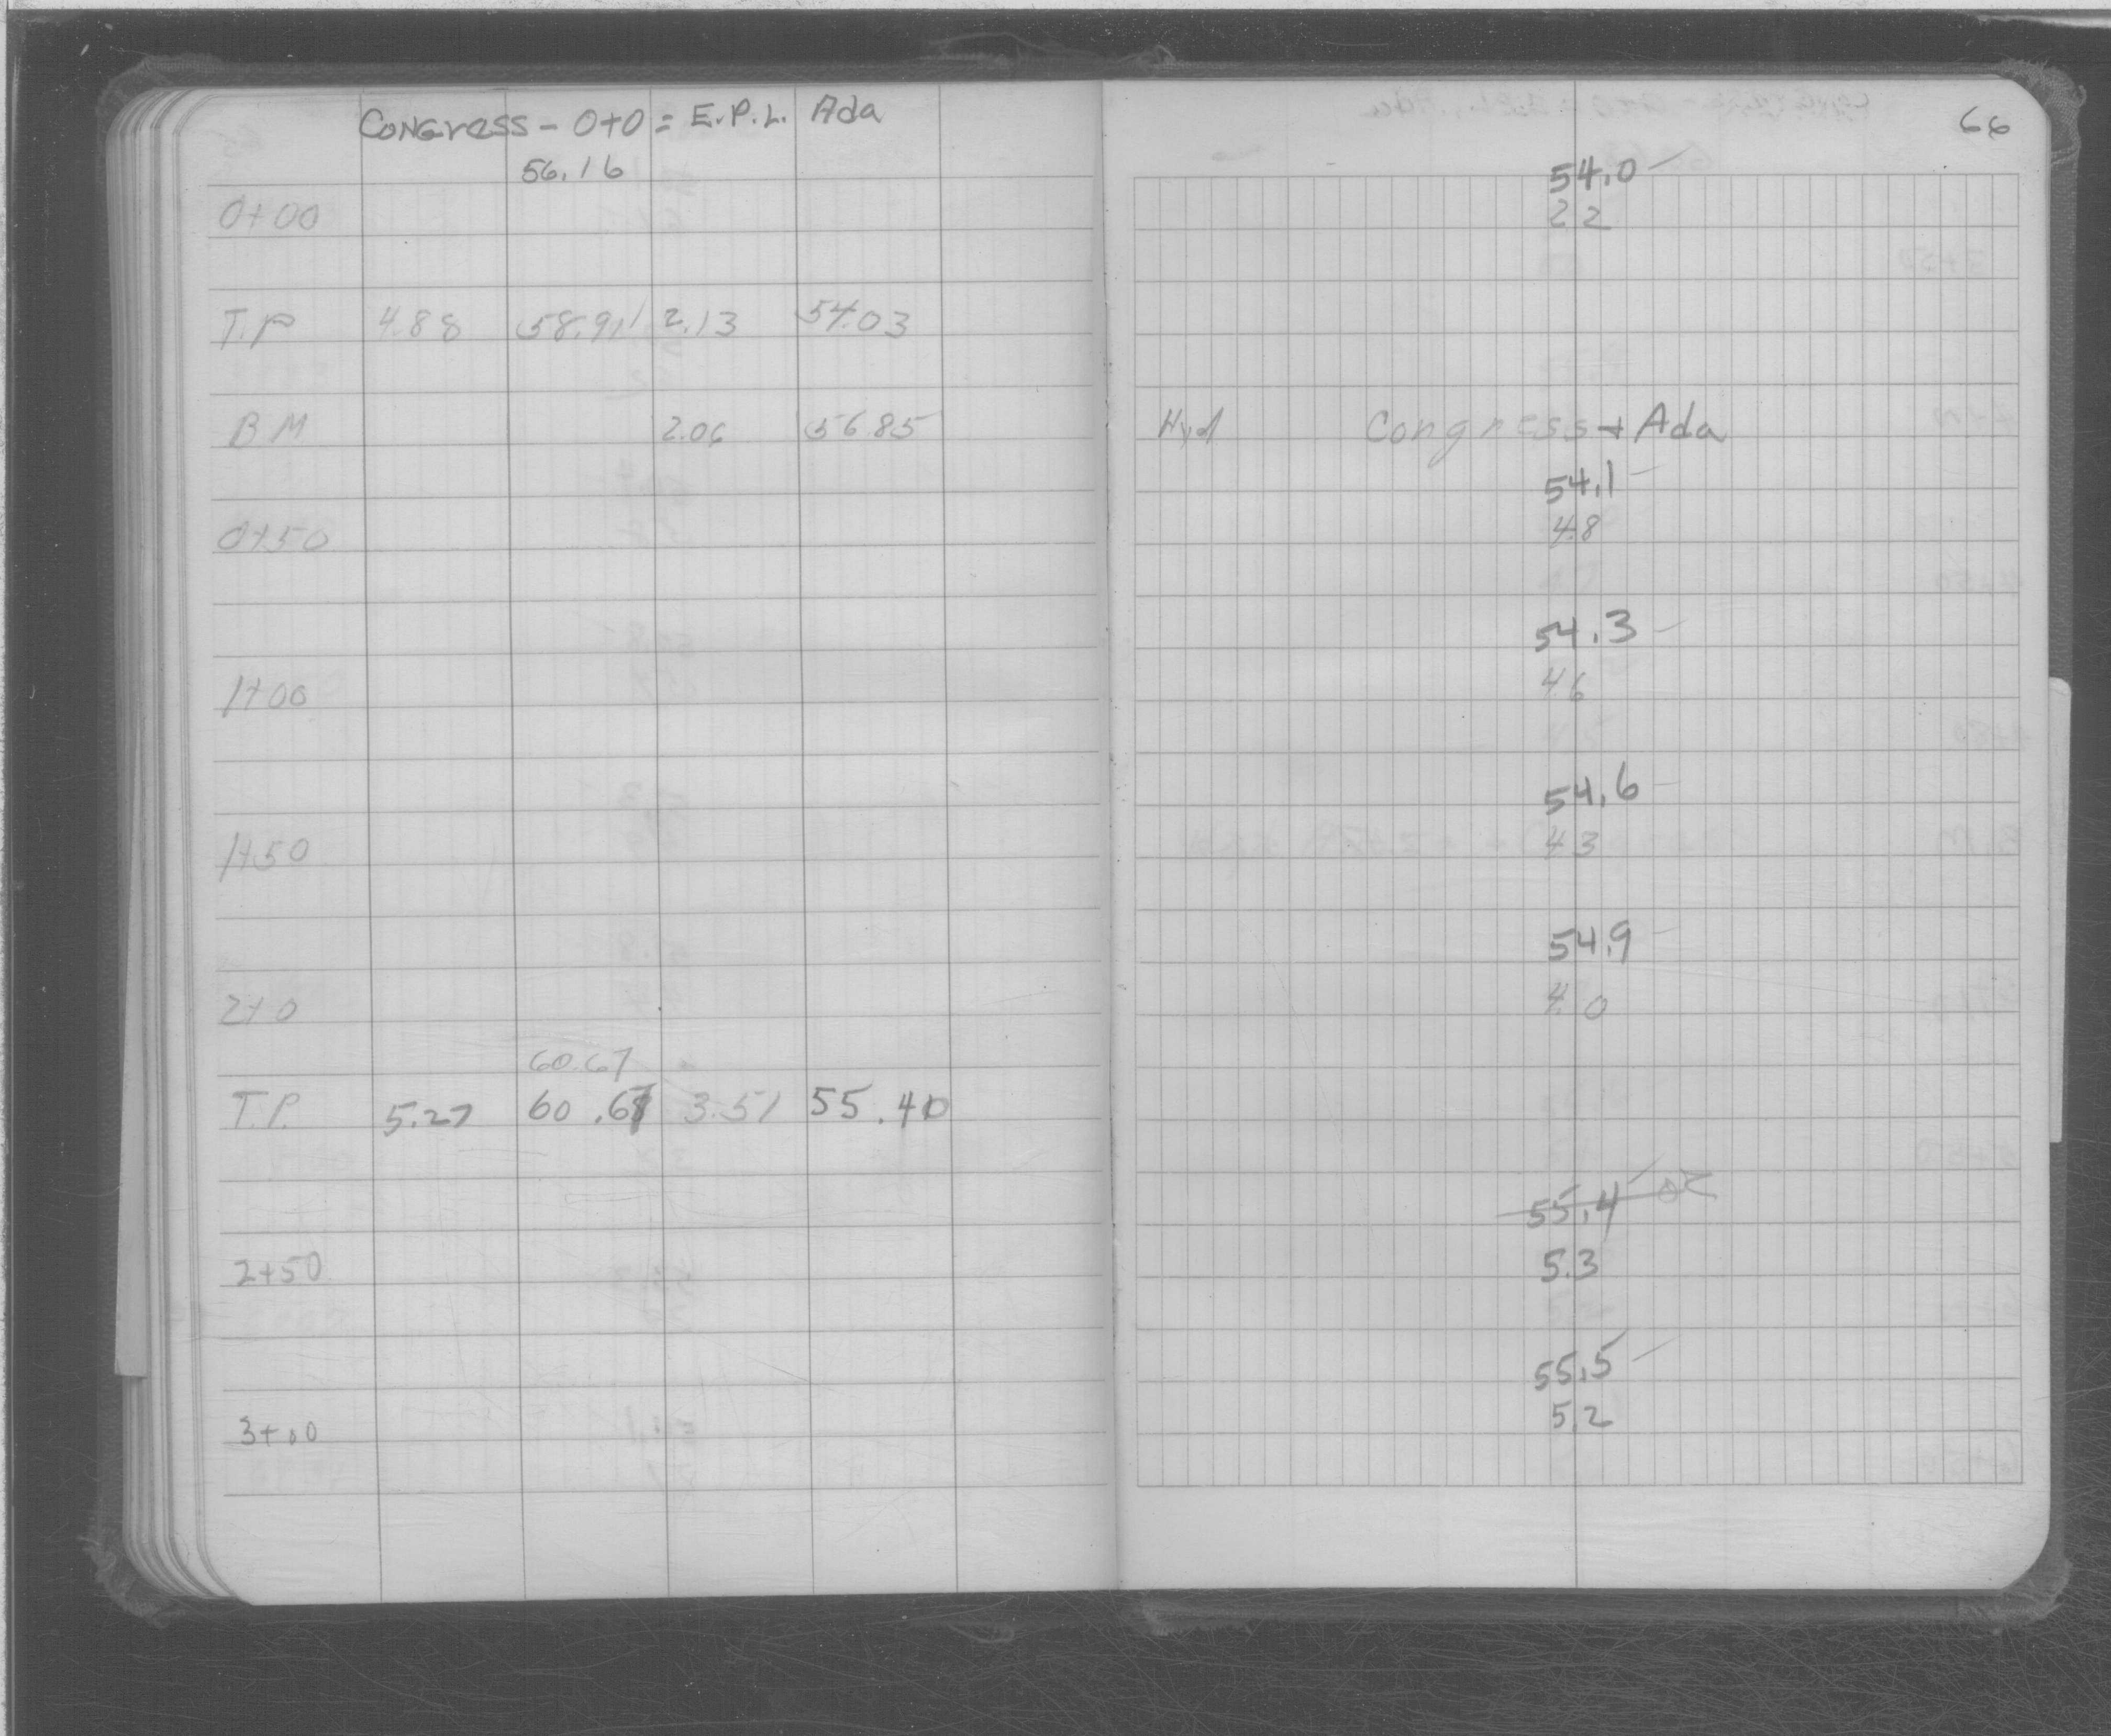 Congress - 0+0 = E.P.L. Ada
66
56.16
54.0
0+00
22
T.P 4.88 58.91 2.13 54.03
BM 2.06 56.85 Hyd. Congress + Ada
54.1
0+50 4.8
54.3
1+00 46
54.6
1+50 43
54.9
2+0 4.0
60.67
T.P. 5.27 60.67 3.51 55.40
55.4
2+50 5.3
55.5
3+00 5.2